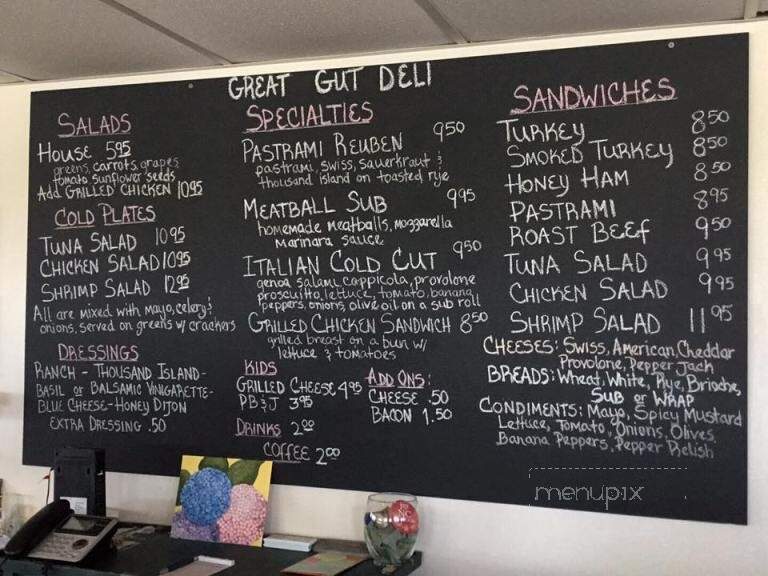 GREAT GUT DELI
SALADS
HOUSE 5.95
greens, carrots, grapes
tomato & sunflower seeds
Add GRILLED CHICKEN 10.95
COLD PLATES
TUNA SALAD 10.95
CHICKEN SALAD 10.95
SHRIMP SALAD 12.95
All are mixed with mayo, celery &
onions, served on greens w/ crackers
DRESSINGS
RANCH - THOUSAND ISLAND-
BASIL or BALSAMIC VINIGARETTE-
BLUE CHEESE-HONEY DIJON
EXTRA DRESSING .50
SPECIALTIES
PASTRAMI REUBEN 9.50
pastrami, swiss, sauerkraut &
thousand island on toasted rye
MEATBALL SUB 9.95
homemade meatballs, mozzarella
marinara sauce
ITALIAN COLD CUT 9.50
genoa salami, cappicola, provolone
prosciutto, lettuce, tomato, banana
peppers, onions, olive oil on a sub roll
GRILLED CHICKEN SANDWICH 8.50
grilled breast on a bun w/
lettuce & tomatoes
KIDS
GRILLED CHEESE 4.95
PB&J 3.95
DRINKS 2.00
COFFEE 2.00
ADD ONS:
CHEESE .50
BACON 1.50
SANDWICHES
TURKEY 8.50
SMOKED TURKEY 8.50
HONEY HAM 8.50
PASTRAMI 8.95
ROAST BEEF 9.50
TUNA SALAD 9.95
CHICKEN SALAD 9.95
SHRIMP SALAD 11.95
CHEESES: Swiss, American, Cheddar
Provolone, Pepper Jack
BREADS: Wheat, White, Rye, Brioche,
SUB or WRAP
CONDIMENTS: Mayo, Spicy Mustard
Lettuce, Tomato, Onions, Olives,
Banana Peppers, Pepper Relish
menupix